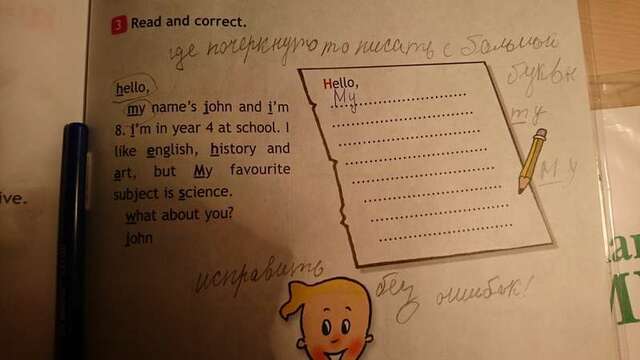 3 Read and correct.
где почеркнуто то писать с большой
буквы
hello,
my name's john and i'm
8. I'm in year 4 at school. I
like english, history and
art, but My favourite
subject is science.
what about you?
john
Hello,
My
my
My
ive.
исправить без ошибок!